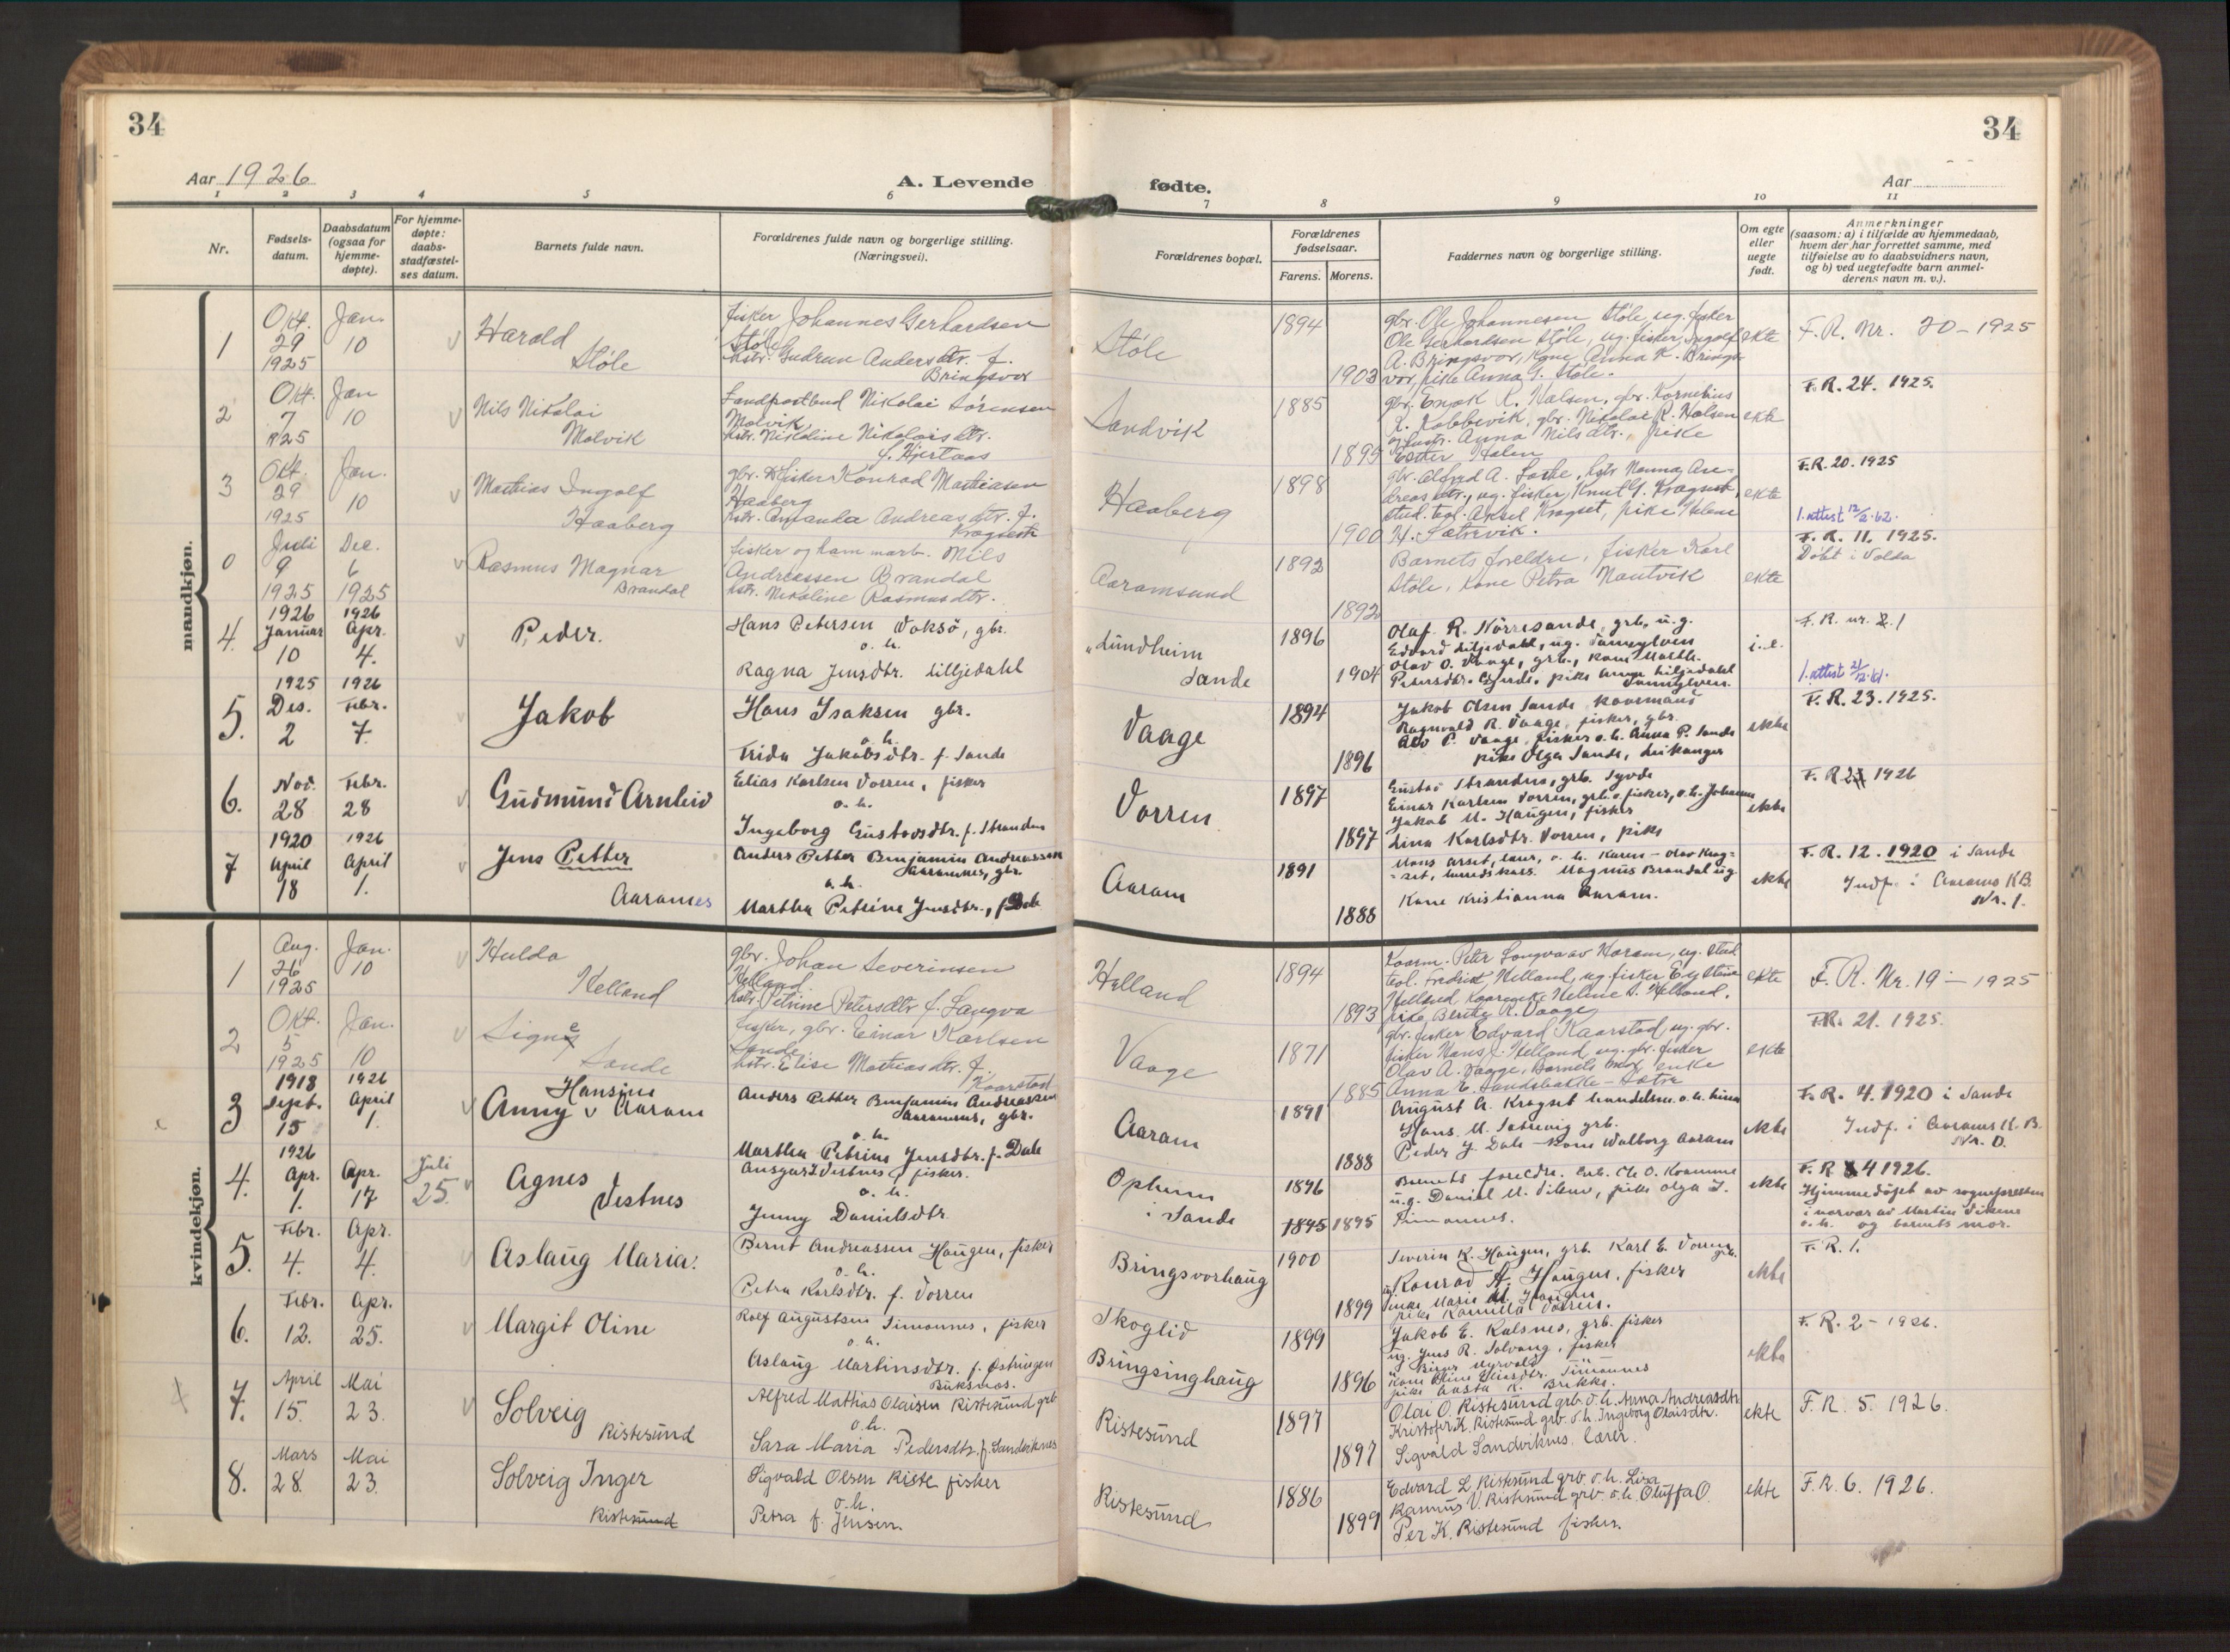 34
34
Aar 1926
A. Levende
fødte.
Aar
1 2 3 4 5 6 7 8 9 10 11
Nr.
Fødsels-
datum.
Daabsdatum
(ogsaa for
hjemme-
døpte).
For hjemme-
døpte:
daabs-
stadfæstel-
ses datum.
Barnets fulde navn.
Forældrenes fulde navn og borgerlige stilling.
(Næringsvei).
Forældrenes bopæl.
Forældrenes
fødselsaar.
Farens. Morens.
Faddernes navn og borgerlige stilling.
Om egte
eller
uegte
født.
Anmerkninger
(saasom: a) i tilfælde av hjemmedaab,
hvem der har forrettet samme, med
tilføielse av to daabsvidners navn,
og b) ved uegtefødte barn anmel-
derens navn m. v.).
mandkjøn.
1
Okt.
29
1925
Jan.
10
Harald
Støle
fisker Johannes Gerhardsen
Støle
hstr. Gudrun Andersdtr. f.
Bringsvor
Støle
1894
1903
gbr. Ole Johannesen Støle, ug. fisker
Ole Gerhardsen Støle, ug. fisker, Ingolf
A. Bringsvor, kone Anna K. Brings-
vor, pike Anna G. Støle.
ekte
F. R. Nr. 20 - 1925
2
Okt.
7
1925
Jan
10
Nils Nikolai
Molvik
Landpostbud Nikolai Sørensen
Molvik
hstr. Nikoline Nikolaisdtr.
f. Hjertaas
Sandvik
1885
1895
gbr. K. Halsen, gbr. Kornelius
gbr. Nikolai R. Halsen
hustr. Anna Nilsdtr., pike
Esther Halen
ekte
F. R. 24. 1925.
3
Okt.
29
1925
Jan.
10
Mathias Ingolf
Haaberg
gbr. & fisker Konrad Mathiasen
Haaberg
hstr. Amanda Andreasdtr. f.
Kragseth
Haaberg
1898
1900
gbr. Alfred A. hstr. Hanna An-
dreasdtr., ug. fisker, Knut G. Kragseth,
stud. teol. Aksel Kragset, pike Helene
H. Sætrevik.
ekte
F.R. 20. 1925
1. attest 12/2.62.
0
Juli
9
1925
Dec.
6
1925
Rasmus Magnar
Brandal
fisker og ham marb. Nils
Andreassen Brandal
hstr. Nikoline Rasmusdtr.
Aaramsund
1892
1892
Barnets foreldre, fisker Karl
Støle, kone Petra Nautvik
ekte
F. R. 11. 1925.
Døbt i Volda
4.
1926
Januar
10
1926
Apr.
4.
Peder.
Hans Petersen Voksö, gbr.
o. h.
Ragna Jensdtr. Lilljedahl
"Lundheim
Sande
1896
1904
Olaf R. Nörresande, grb., u.g.
Edvard Liljedahl, ug. Vannylven
Olav O. Vaage, grb., kone Malth.
Petersdtr. Gjerde, pike Anna Liljedahl
Vannylven.
i.e.
F. R. nr. 2.1
1. attest 21/12.61.
5.
1925
Des.
2
1926
Febr.
7.
Jakob
Hans Isaksen gbr.
o. h.
Frida Jakobsdtr. f. Sande
Vaage
1894
1896
Jakob Olsen Sande
Ragnvald R. Vaage, fisker, gbr.
P. Vaage, fisker o. h. Anna P. Sande
pike Olga Sande, Leikanger
ekte
F. R. 23. 1925.
6.
Nov.
28
Febr.
28
Gudmund Arnleiv
Elias Karlsen Vorren, fisker
o. h.
Ingeborg Gustavsdtr. f. Stranden
Vorren
1897
1897
Gustav Stranden, grb. Syvde
Einar Karlsen Vorren, grb. o. fisker, o. h. Johanna
Jakob M. Haugen, fisker
Lina Karlsdtr. Vorren, pike
ekte
F. R. 1926
7
1920
April
18
1926
April
1.
Jens Petter
Aaramnes
Anders Petter Benjamin Andreassen
Aaramnes, gbr.
o. h.
Martha Petrine Jensdtr., f. Dale
Aaram
1891
1888
Hans Arset, lærer, o. h. Karen - Olav Krag-
set, Magnus Brandal ug.
Kone Kristianna Aaram.
ekte
F. R. 12. 1920 i Sande
Indf. i Aarams K.B.
Nr. 1.
kvindekjøn.
1
Aug.
26
1925
Jan.
10
Hulda
Helland
gbr. Johan Severinsen
Helland
hstr. Petrine Petersdtr. f. Longva
Helland
1894
1893
Peter Longva av Haram, ug. stud.
teol. Fredrik Helland, ug. fisker Eystein
Helland, Helene S. Helland,
pike Berthe R. Vaage
ekte
F. R. Nr. 19 - 1925
2
Okt.
5
1925
Jan.
10
Signe
Sande
fisker, gbr. Einar Karlsen
Sande
hstr. Elise Mathiasdtr. f.
Kaarstad
Vaage
1871
1885
gbr. fisker Edvard Kaarstad, ug. gbr.
fisker Hans J. Helland, ug. gbr. fisker
Olav A. Vaage, Barnets mor, enke
Anna E. Sandsbakke - Sætre
ekte
F.R. 21. 1925.
3
1918
Sept.
15
1926
April
1.
Hansine
Anny v Aaram
Anders Petter Benjamin Andreassen
Aaramnes, gbr.
o. h.
Martha Petrine Jensdtr. f. Dale
Aaram
1891
1888
August A. Kragset handelsm. o. h. Lina
Hans M. Sætrevig grb.
Peder J. Dale - kone Walborg Aaram
ekte
F. R. 4. 1920 i Sande
Indf. i Aarams K. B.
Nr. 0.
4.
1926
Apr.
1.
Apr.
17
Juli
25.
Agnes
Vestnes
Ansgar Vestnes, fisker.
o. h.
Jenny Danielsdtr.
Opheim
i Sande
1896
1895 1895
Barnets foreldre. O. Kramme
u.g. Daniel M. Vikene, pike Olga J.
Simonnes.
ekte
F. R 4 1926.
Hjemmedöpt av sognepresten
i nærvær av Martin Vikene
o.h. og barnets mor.
5.
Febr.
4.
Apr.
4.
Aslaug Maria.
Bernt Andreassen Haugen, fisker
o. h.
Petra Karlsdtr. f. Vorren
Bringsvorhaug
1900
1899
Severin K. Haugen, grb. Karl E. Vorren
grb.
ug. Konrad A. Haugen, fisker
pike Marie M. Haugen
pike Kamilla Vorren.
ekte
F. R. 1.
6.
Febr.
12.
Apr.
25.
Margit Oline
Rolf Augustsen Simonnes, fisker
o. h.
Aslaug Martinsdtr. f. Østringen
Buksnes.
Skoglid
Bringsinghaug
1899
1896
Jakob E. Kulsnes, grb. fisker
ug. Jens R. Solvang, fisker
" Birger Myrvold
Kone Oline Eliasdtr. Simonnes
pike Aasta K. Brekke.
ekte
F. R. 2 - 1926.
7.
April
15.
Mai
23.
Solveig
Ristesund
Alfred Mathias Olaisen Ristesund grb
o.h.
Sara Maria Pedersdtr. f. Sandviknes
Ristesund
1897
1897
Olai O. Ristesund grb. o. h. Anna Andreasdtr.
Kristofer K. Ristesund grb. o. h. Ingeborg Olaisdtr.
Sigvald Sandviknes, lærer.
ekte
F. R. 5. 1926.
8.
Mars
28.
Mai
23.
Solveig Inger
Ristesund
Sigvald Olsen Riste fisker
o.h.
Petra f. Jensen.
Ristesund
1886
1899
Edvard L. Ristesund grb. o. h. Lisa
Rasmus V. Ristesund grb. o. h. Oluffa O.
Per K. Ristesund fisker.
ekte
F. R. 6. 1926.